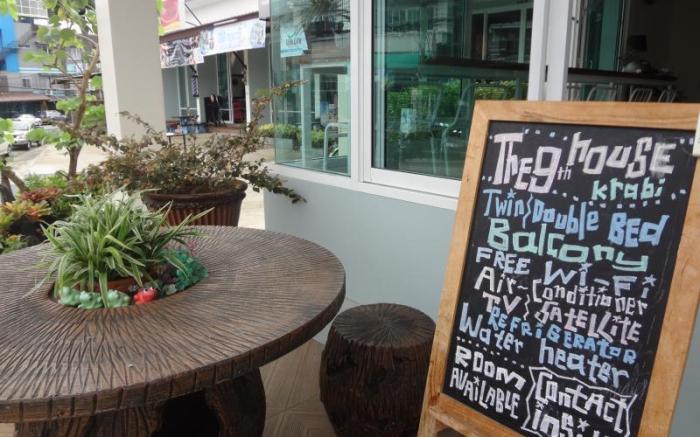 The 9th house
Krabi
Twin/Double BEd
Balcony
FREE Wi-Fi
Air-Conditioner
TV/SatELLitE
REFRIGERATOR
Water heater
ROOM
AVAILABLE
Contact